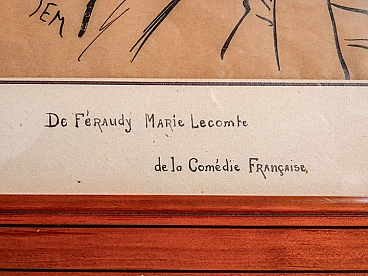 SEM
De Féraudy Marie Lecomte
de la Comédie Française,